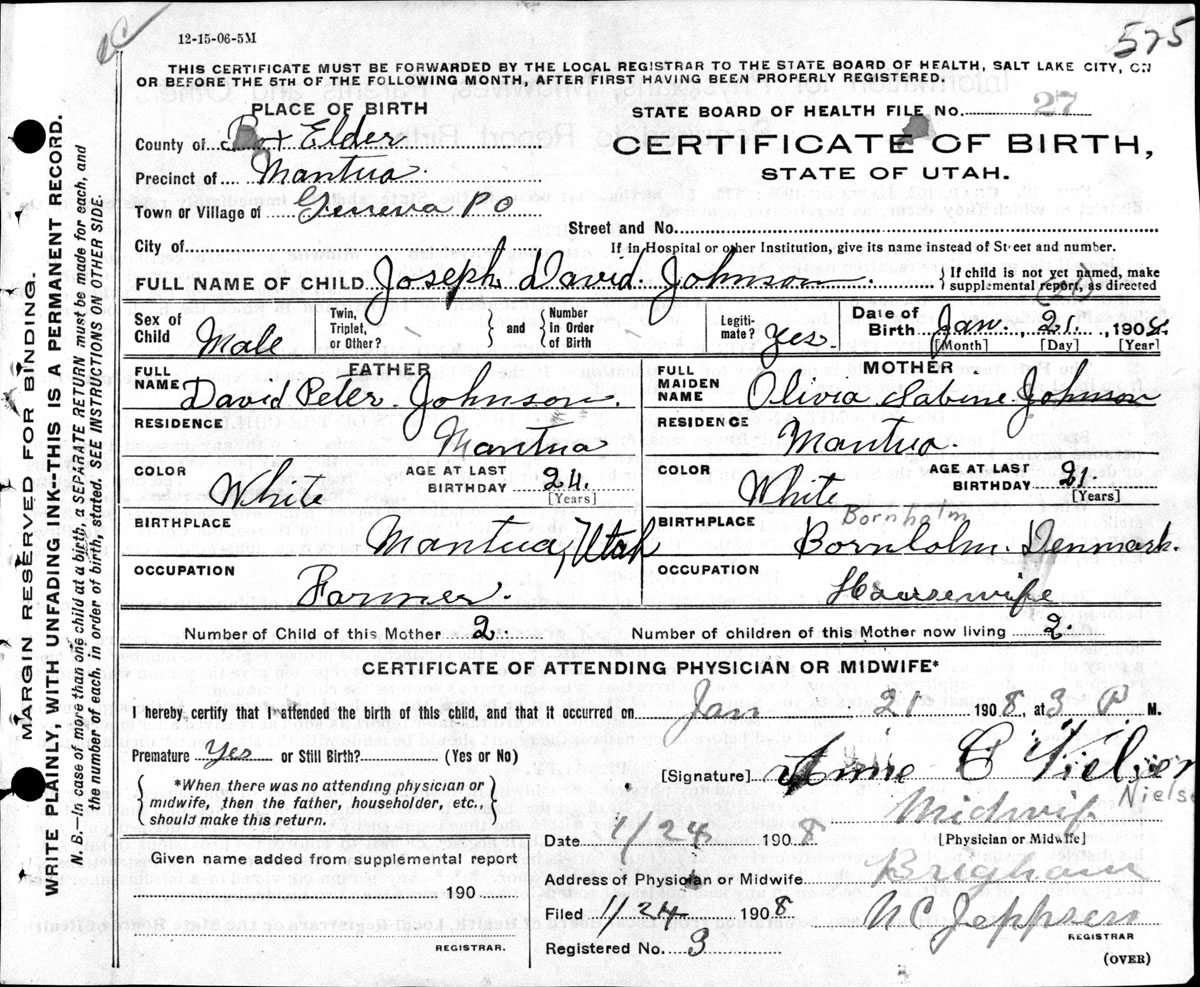 12-15-06-5M
575
THIS CERTIFICATE MUST BE FORWARDED BY THE LOCAL REGISTRAR TO THE STATE BOARD OF HEALTH, SALT LAKE CITY, ON
OR BEFORE THE 5TH OF THE FOLLOWING MONTH, AFTER FIRST HAVING BEEN PROPERLY REGISTERED.
PLACE OF BIRTH
STATE BOARD OF HEALTH FILE No. 27
County of Box Elder
CERTIFICATE OF BIRTH,
Precinct of Mantua
STATE OF UTAH.
Town or Village of Geneva P O
Street and No.
City of
If in Hospital or other Institution, give its name instead of Street and number.
FULL NAME OF CHILD Joseph David Johnson. } If child is not yet named, make supplemental report, as directed
(21)
Sex of Child Male Twin, Triplet, or Other? } and { Number in Order of Birth Legitimate? Yes. Date of Birth Jan. 21. 1908.
[Month] [Day] [Year]
FATHER
FULL NAME David Peter Johnson.
RESIDENCE Mantua
COLOR White AGE AT LAST BIRTHDAY 24.
[Years]
BIRTHPLACE Mantua, Utah
OCCUPATION Farmer.
MOTHER
FULL MAIDEN NAME Olivia Sabine Johnson
RESIDENCE Mantua
COLOR White AGE AT LAST BIRTHDAY 21.
[Years]
Bornholm
BIRTHPLACE Bornholm Denmark.
OCCUPATION Housewife
Number of Child of this Mother 2. Number of children of this Mother now living 2.
CERTIFICATE OF ATTENDING PHYSICIAN OR MIDWIFE*
I hereby certify that I attended the birth of this child, and that it occurred on Jan 21 1908, at 3 P M.
Premature Yes or Still Birth? (Yes or No)
[Signature] Annie C Nielsen
Nielse
*When there was no attending physician or
midwife, then the father, householder, etc.,
should make this return.
Midwif
Date 1/24 1908 [Physician or Midwife]
Given name added from supplemental report
190
REGISTRAR.
Address of Physician or Midwife Brigham
Filed 1/24 1908 N C Jeppsen
REGISTRAR
Registered No. 3
(OVER)
MARGIN RESERVED FOR BINDING.
WRITE PLAINLY, WITH UNFADING INK—THIS IS A PERMANENT RECORD.
N. B.—In case of more than one child at a birth, a SEPARATE RETURN must be made for each, and
the number of each, in order of birth, stated. SEE INSTRUCTIONS ON OTHER SIDE.